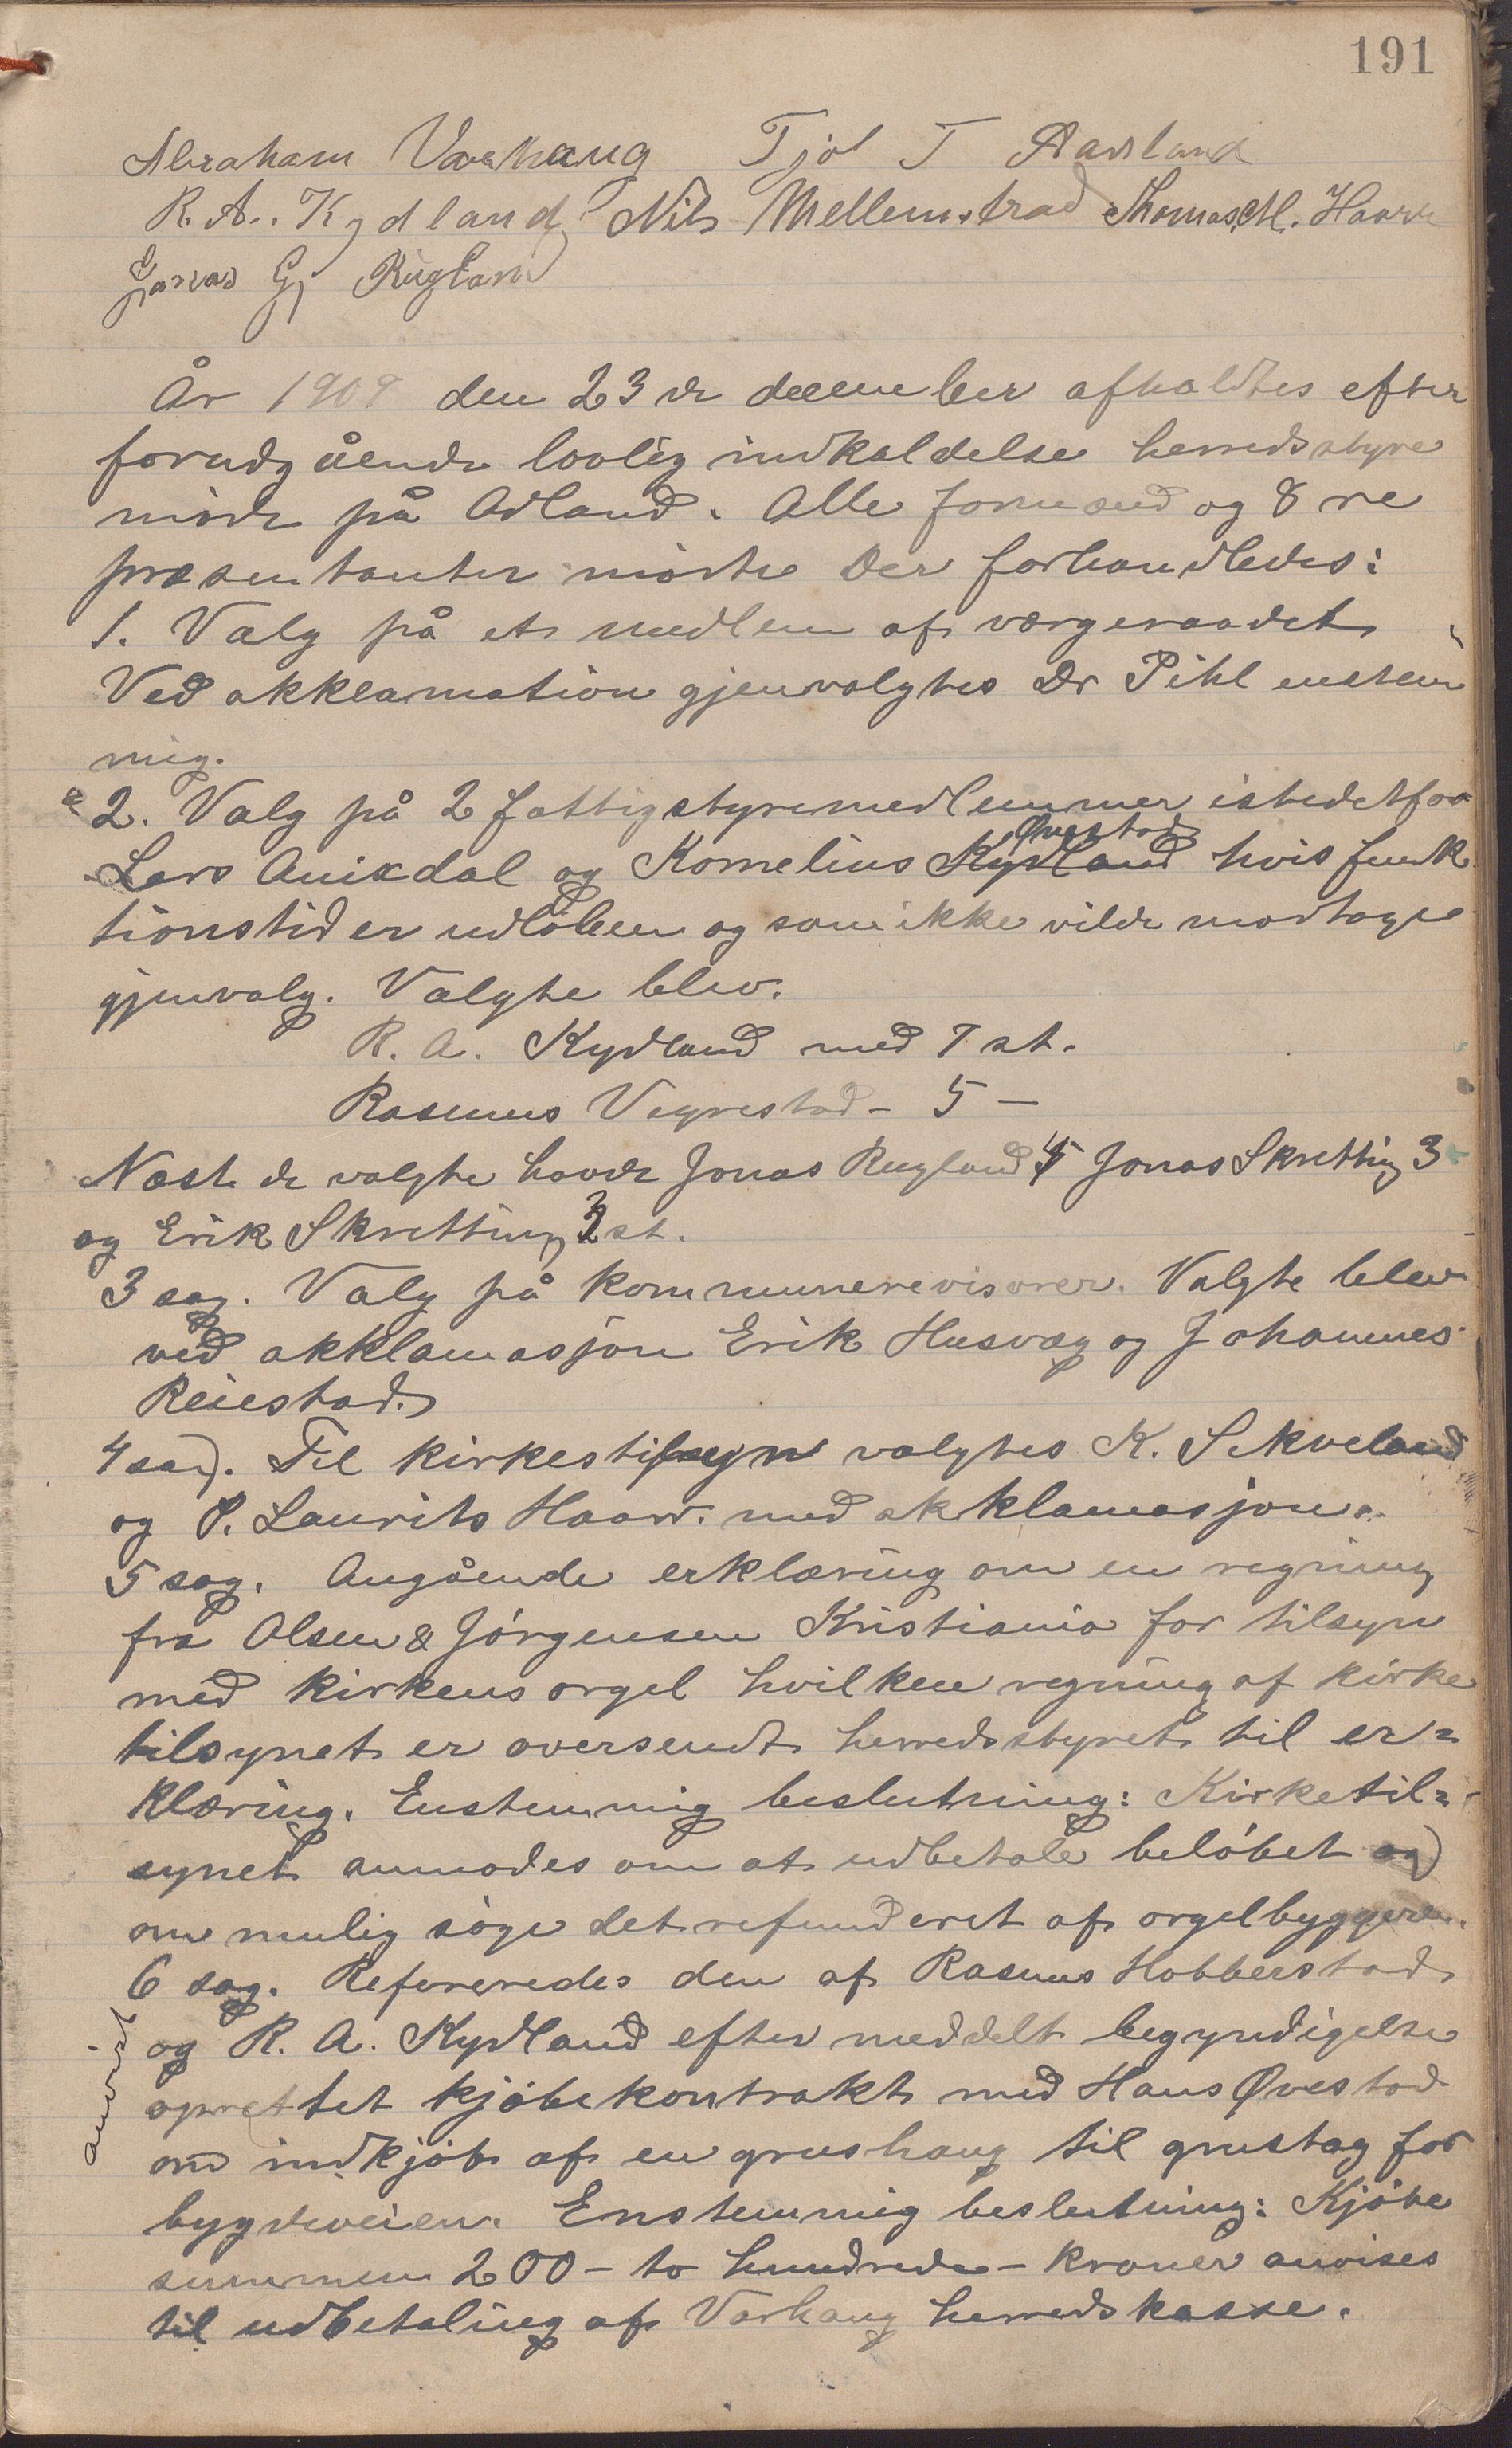 191
Abraham Varhaug Tjøl T Aarsland
R. A. Kydland Nils Mellemstrad Thomas M. Haarr
Jonas Gj Rugland
År 1909 den 23de december afholdtes efter
forudgående lovlig indkaldelse herredsstyre
møde på Odland. Alle formænd og 8 re
præsentanter mødte Der forhandledes:
1. Valg på et medlem af værgeraadet
Ved akklamation gjenvalgtes Dr Pihl enstem
mig.
2. Valg på 2 fattigstyremedlemmer istedetfor
Lars Aniksdal og Kornelius Kydland Øvestad hvis funk
tionstid er udløben og som ikke vilde modtage
gjenvalg. Valgte blev.
R. A. Kydland med 7 st.
Rasmus Vegrestad - 5 -
Næst de valgte havde Jonas Rugland 4 Jonas Skretting 3
og Erik Skretting 3 st.
3 sag. Valg på kommunerevisorer. Valgte blev
ved akklamasjon Erik Husvæg og Johannes
Reiestad.
4 sag. Til kirkestilsyn valgtes K. Sikveland
og P. Laurits Haarr. med akklamasjon.
5 sag. Angående erklæring om en regning
fra Olsen & Jørgensen Kristiania for tilsyn
med kirkens orgel hvilken regning af kirke
tilsynet er oversendt herredsstyret til er=
klæring. Enstemmig beslutning: Kirketil=
synet anmodes om at udbetale beløbet og
om mulig søge det refunderet af orgelbyggeren.
6 sag. Refereredes den af Rasmus Hobberstad
og R. A. Kydland efter meddelt begyndigelse
oprettet kjøbekontrakt med Hans Øvestad
om indkjøb af en grushaug til grustag for
bygdeveien. Enstemmig beslutning: Kjøbe
summen 200 - to hundrede - kroner anvises
til udbetaling af Varhaug herredskasse.
anvist